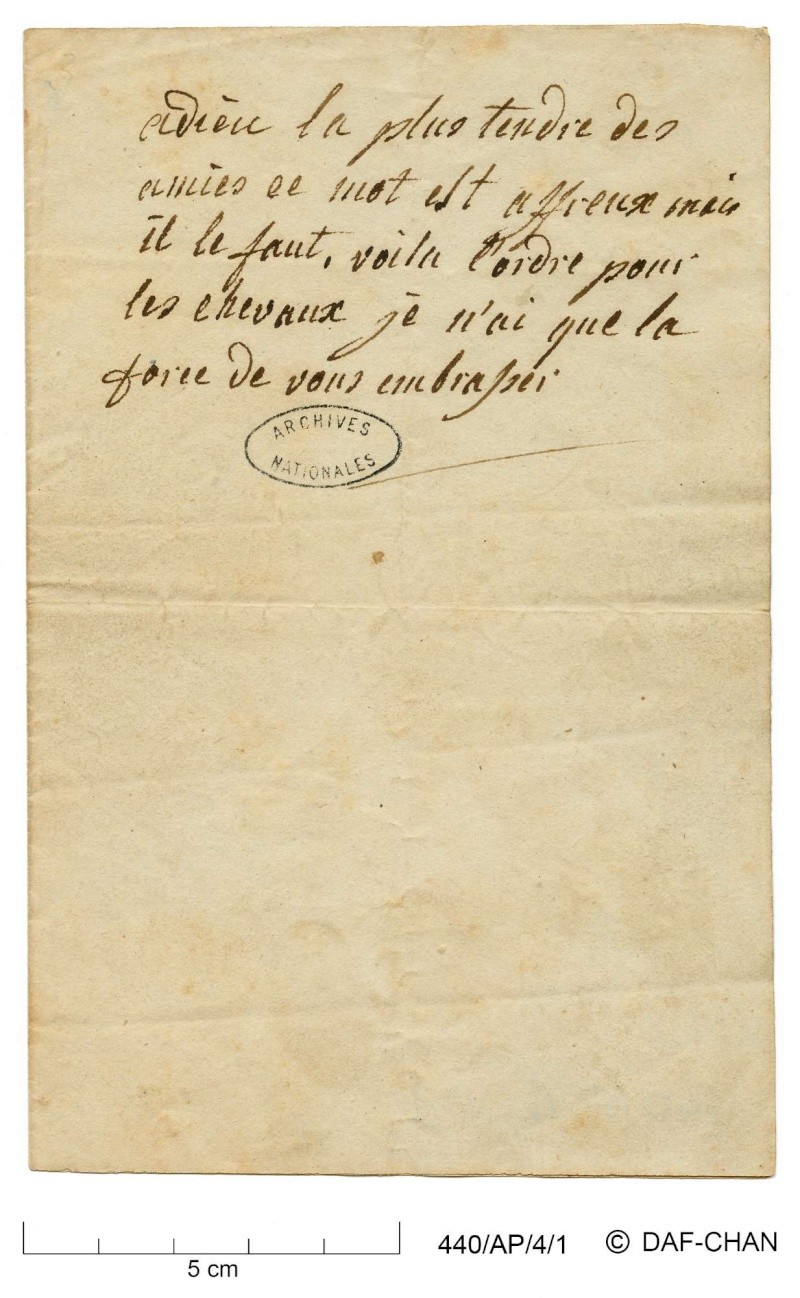 adieu la plus tendre des
amies ce mot est affreux mais
il le faut, voila l'ordre pour
les chevaux je n'ai que la
force de vous embrasser
ARCHIVES
NATIONALES
5 cm
440/AP/4/1 © DAF-CHAN